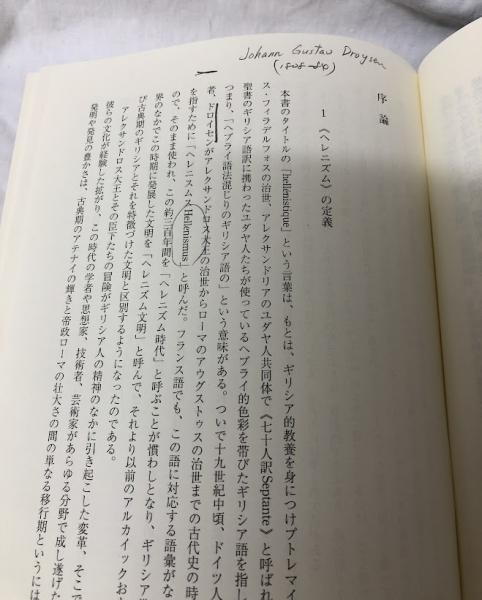 Johann Gustav Droysen
(1808-84)
序論
1 《ヘレニズム》の定義
本書のタイトルの「hellénistique」という言葉は、もとは、ギリシア的教養を身につけプトレマイ
ス・フィラデルフォスの治世、アレクサンドリアのユダヤ人共同体で《七十人訳Septante》と呼ばれ
聖書のギリシア語訳に携わったユダヤ人たちが使っているヘブライ的色彩を帯びたギリシア語を指し
つまり、「ヘブライ語法混じりのギリシア語の」という意味がある。ついで十九世紀中頃、ドイツ人
者、ドロイセンがアレクサンドロス大王の治世からローマのアウグストゥスの治世までの古代史の時
を指すために「ヘレニスムスHellenismus」と呼んだ。フランス語でも、この語に対応する語彙がな
ので、そのまま使われ、この約三百年間を「ヘレニズム時代」と呼ぶことが慣わしとなり、ギリシア
界のなかでこの時期に発展した文明を「ヘレニズム文明」と呼んで、それより以前のアルカイックお
び古典期のギリシアとそれを特徴づけた文明と区別するようになったのである。
アレクサンドロス大王とその臣下たちの冒険がギリシア人の精神のなかに引き起こした変革、そこで
彼らの文化が経験した拡がり、この時代の学者や思想家、技術者、芸術家があらゆる分野で成し遂げた
発明や発見の豊かさは、古典期のアテナイの輝きと帝政ローマの壮大さの間の単なる移行期というには